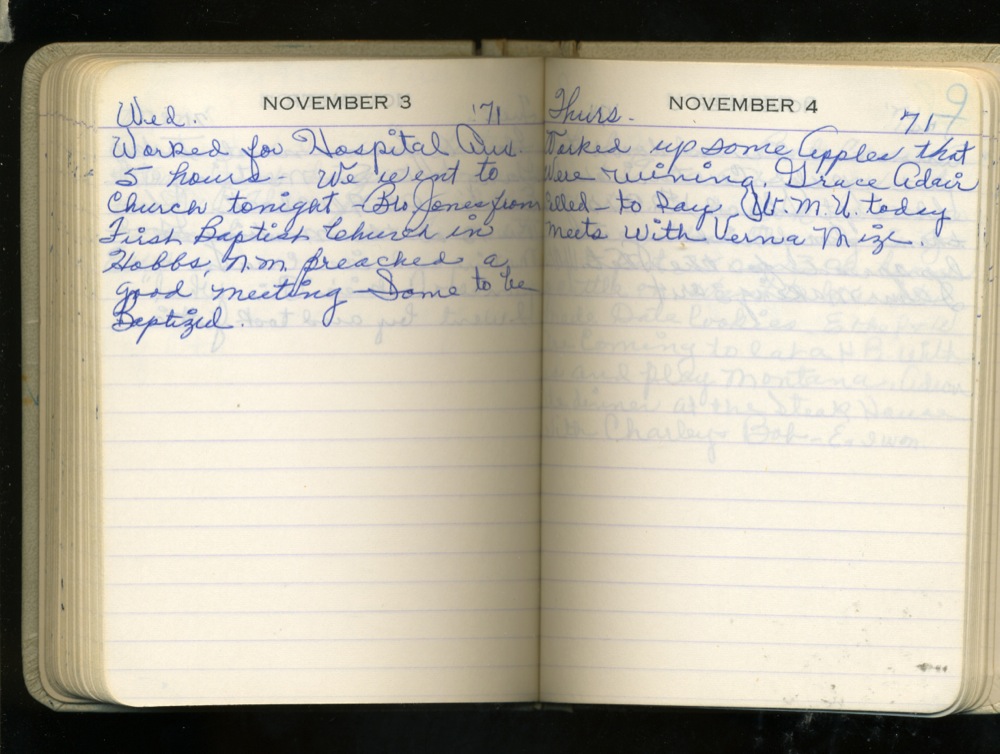 NOVEMBER 3
Wed. '71
Worked for Hospital Aux.
5 hours - We went to
Church tonight - Bro Jones from
First Baptist Church in
Hobbs, N.M. preached a
good meeting - Some to be
Baptized.
NOVEMBER 4
Thurs. 71
Worked up some Apples that
were ruining. Grace Adair
Called - to Day. W.M.U. today
meets with Verna Mize.